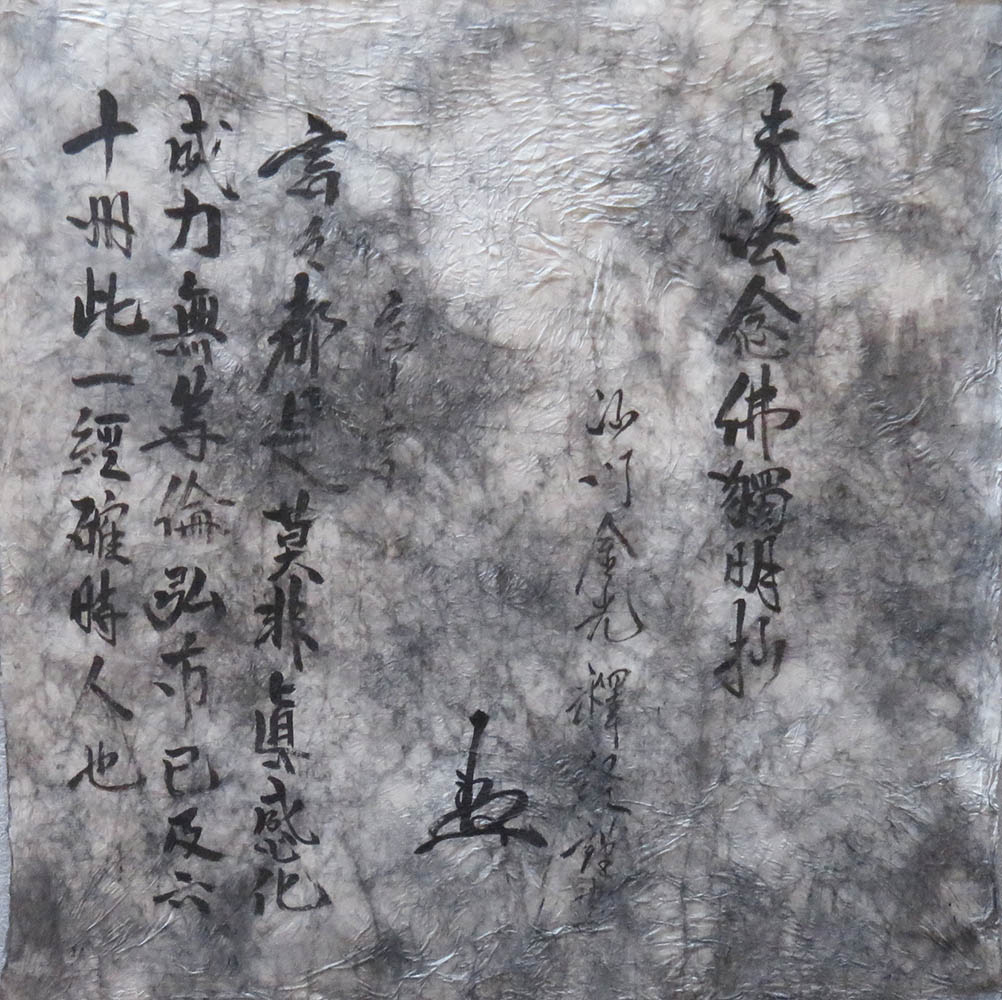 末法念佛獨明抄
沙門金光 釋
言々都是莫非眞感化
威力無等倫弘布已及六
十州此一經確時人也